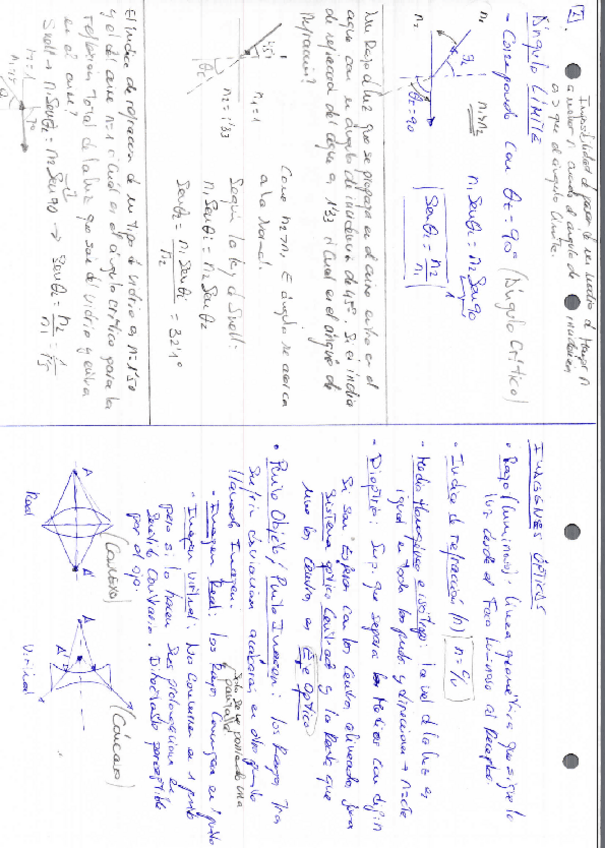 2
Imposibilidad de pasar de un medio de mayor n
a menor n cuando el ángulo de incidencia
es > que el ángulo límite.
Ángulo LÍMITE
- Corresponde con θt = 90° (Ángulo Crítico)
n2
n1
θi
θt = 90
n1 > n2
n1 Senθi = n2 Sen 90
1
Senθi = n2/n1
Un Rayo de luz que se propaga en el aire entra en el
agua con un ángulo de incidencia de 45°. Si el índice
de refracción del agua es 1'33 ¿Cuál es el ángulo de
Refracción?
45°
n1 = 1
n2 = 1'33
θt
Como n2 > n1 el ángulo se acerca
a la Normal.
Según la ley de Snell:
n1 Senθi = n2 Sen θ2
Senθ2 = n1 Senθi / n2 = 32'1°
El índice de refracción de un tipo de vidrio es n = 1'50
y el del aire n = 1 ¿Cuál es el ángulo crítico para la
reflexión total de la luz que sale del vidrio y entra
en el aire?
Snell → n1 Senθi = n2 Sen 90 → Senθi = n2/n1 = 1/1'5
IMÁGENES ÓPTICAS
• Rayo luminoso: línea geométrica que sigue la
luz desde el foco luminoso al Receptor.
• Índice de refracción (n) n = c/v
• Medio Homogéneo e isótropo: la vel de la luz es
igual en todos los puntos y direcciones → n = cte
- Dioptrio: Sup. que separa los Medios con distin n
Si son Esferas con los Centros alineados, forma
Sistema óptico Centrado y la Recta que
une los Centros es Eje óptico
• Punto Objeto / Punto Imagen: los Rayos, tras
Sufrir desviación acabarán en otro punto
llamado Imagen.
• Imagen Real: los Rayos Convergen en 1 punto
pantalla
• Imagen Virtual: No Convergen en 1 punto
pero si lo hacen Sus prolongaciones en
Sentido Contrario. Directamente perceptible
por el ojo.
A
A'
(Convexo)
Real
A
A'
(Cóncavo)
Virtual